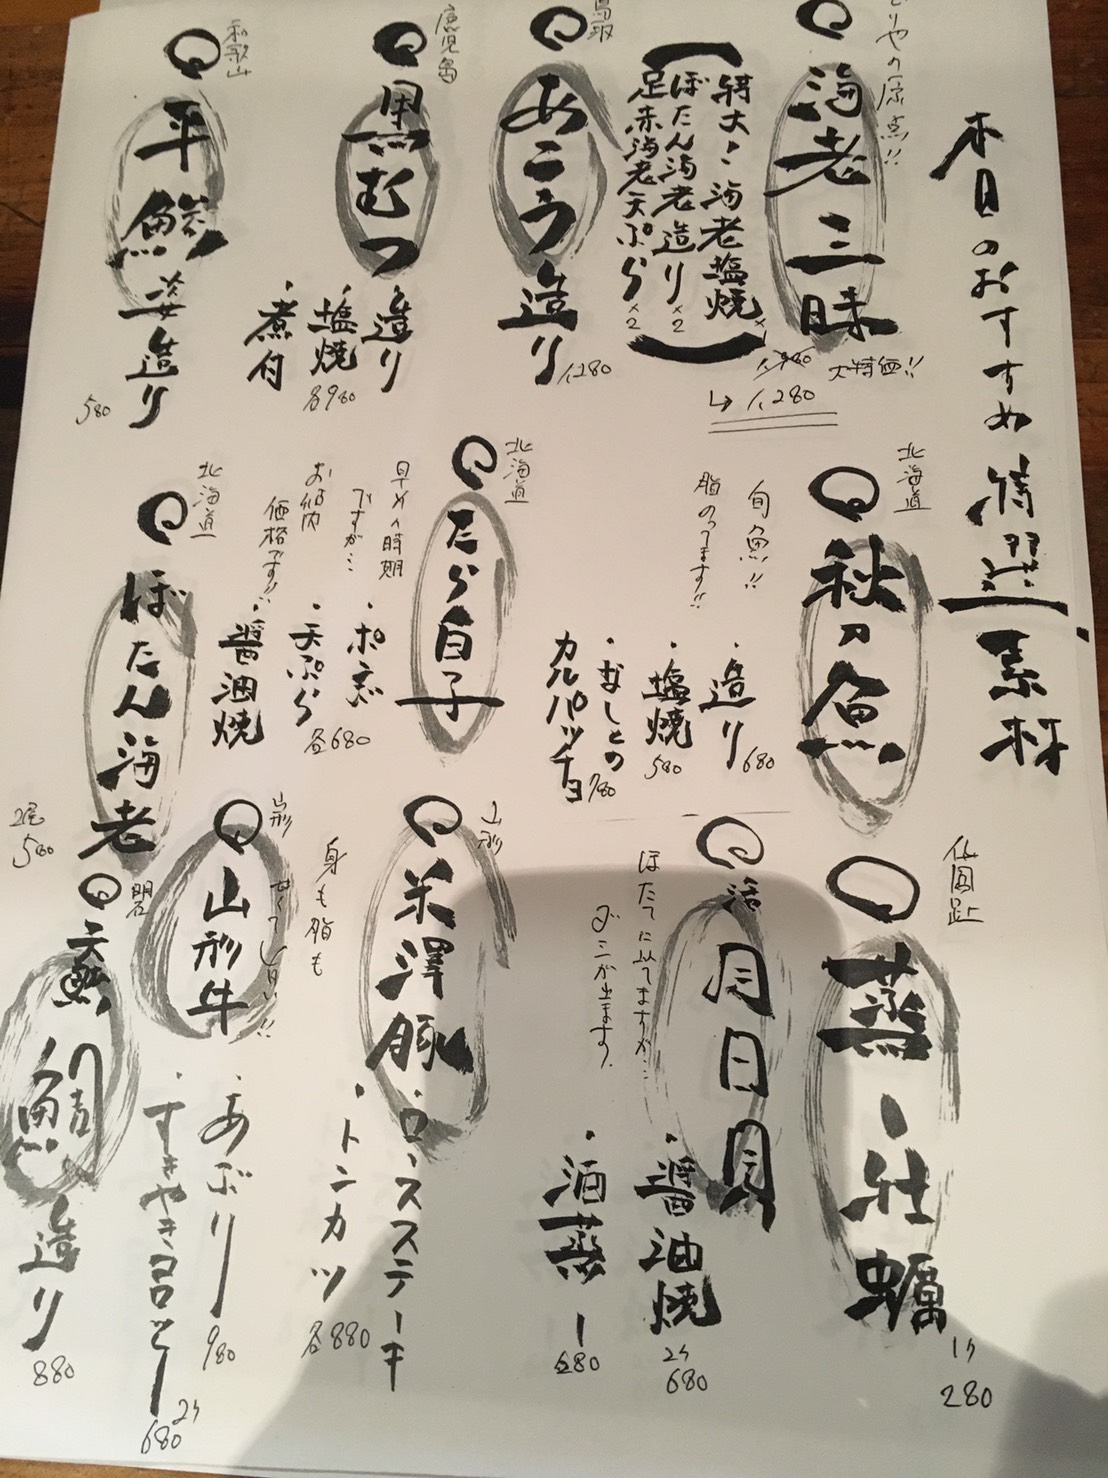 本日のおすすめ 特選素材
りやの原点!!
海老三昧
特大!海老塩焼×1
ぼたん海老造り×2
足赤海老天ぷら×2
1,980
大特価!!
↳1,280
鳥取
あこう造り
1,280
鹿児島
黒むつ
・造り
・塩焼
・煮付
各980
和歌山
平鯵姿造り
580
北海道
秋刀魚
旬魚!!
脂のってます!!
・造り
680
・塩焼
580
・なしとの
カルパッチョ
780
北海道
たら白子
早い時期
ですが…
お値打
価格です!!
・ポン酢
・天ぷら
・醤油焼
各680
北海道
ぼたん海老
2尾
580
仙鳳趾
蒸し牡蠣
1ケ
280
活月日貝
ほたてに似てますが…
ダシが出ます。
・醤油焼
2ケ
680
・酒蒸し
680
山形
米澤豚
身も脂も
甘くて旨い!!
・ロースステーキ
・トンカツ
各880
山形
山形牛
・あぶり
980
・すきやきコロッケ
2ケ
680
明石
天然鯛造り
880